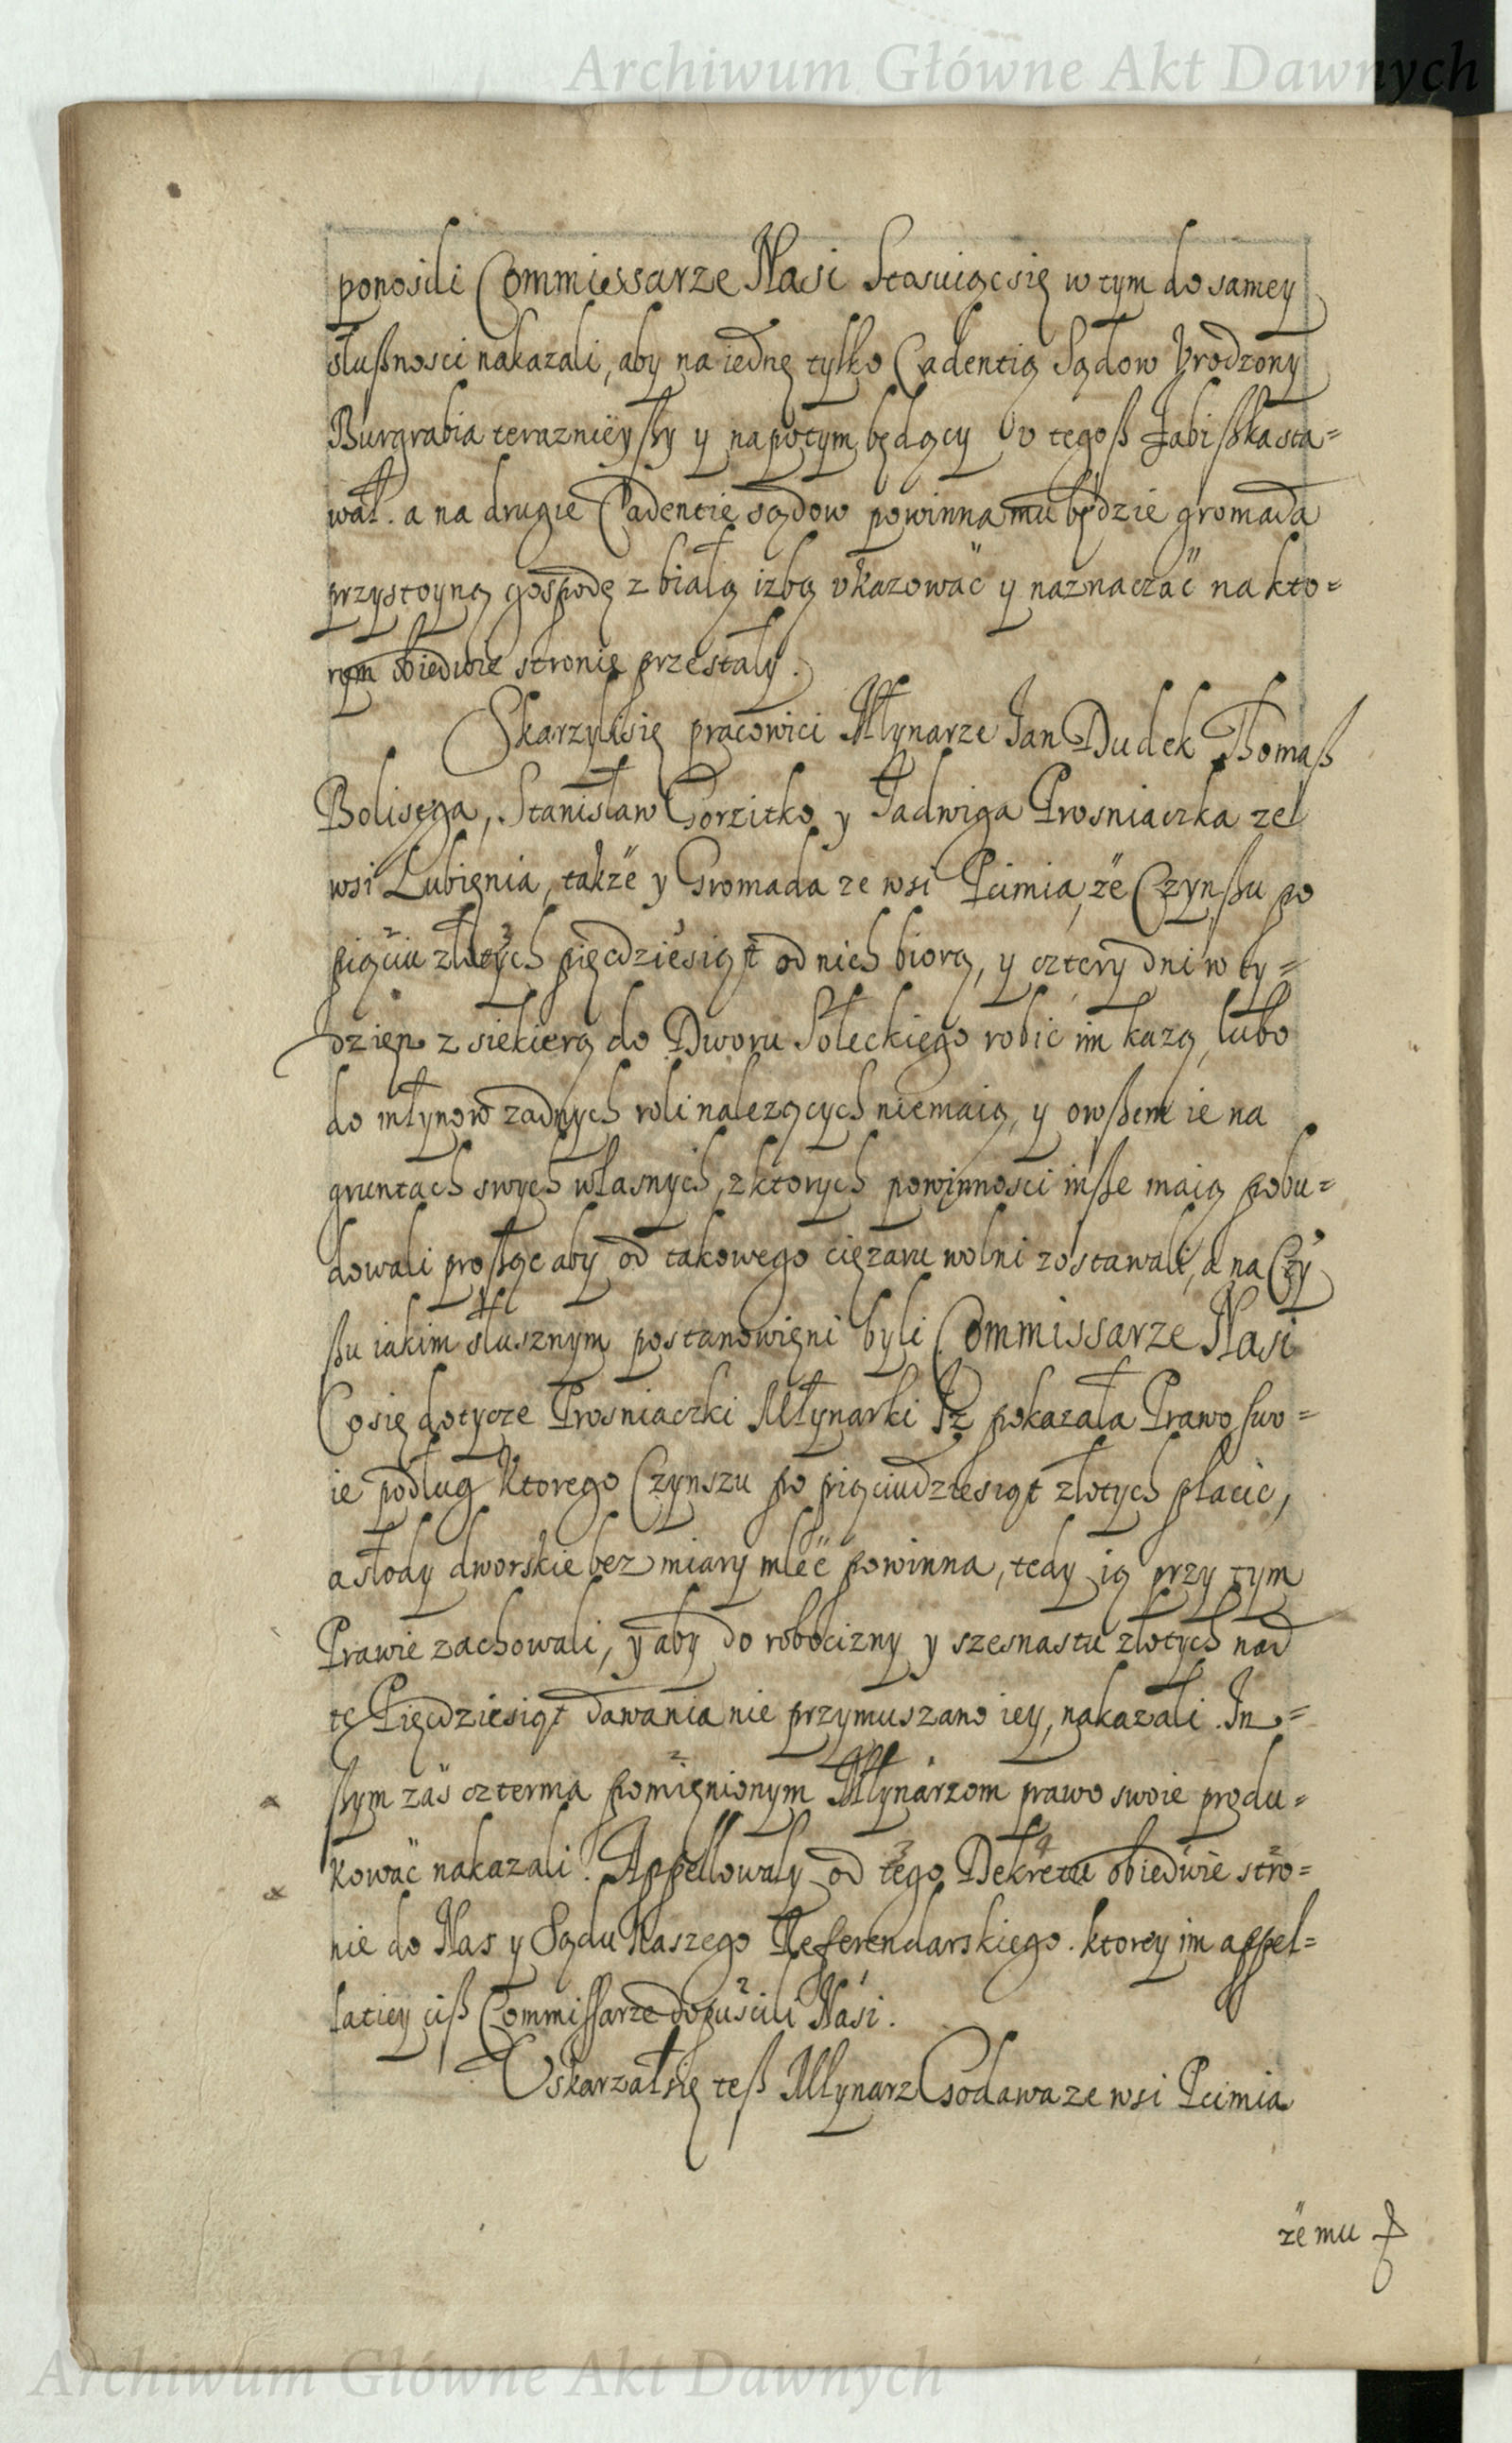 Archiwum Główne Akt Dawnych
ponosili Commissarze Nasi Stosuiąc się w tym do samey
słußnosci nakazali, aby na iednę tylko Cadentią Sądow Vrodzony
Burgrabia teraznieyßy y napotym będący v tegoß Żabißka sta=
wał. a na drugie Cadentie sądow powinna mu będzie gromada
przystoyną gospodę z białą izbą vkazować y naznaczać na kto=
rym obiedwie stronie przestały.
Skarzyli się pracowici Młynarze Jan Dudek Thomaß
Bolisęga, Stanisław Gorzitko y Jadwiga Prosniaczka ze
wsi Lubienia, także y Gromada ze wsi Pcimia, że Czynßu po
piąciu złotych pięcdziesiąt od nich biorą, y cztery dni w ty=
dzien z siekierą do Dworu Sołeckiego robić im kazą, lubo
do młynow zadnych roli nalezących niemaią, y owßem ie na
gruntach swych własnych, z ktorych powinnosci inße maią pobu=
dowali proßąc aby od takowego cięzaru wolni zostawali, a na Czy
ßu iakim słusznym postanowieni byli Commissarze Nasi
Co się dotycze Prosniaczki Młynarki Iż pokazała Prawo swo=
ie podług ktorego Czynszu po piąciudziesiąt złotych płacić,
a słody dworskie bez miary mleć powinna, tedy ią przy tym
Prawie zachowali, y aby do robocizny y szesnastu złotych nad
te Pięcdziesiąt dawania nie przymuszano iey, nakazali. In=
ßym zaś czterma pomienionym Młynarzom prawo swoie produ=
kować nakazali. Appellowały od tego Dekretu obiedwie stro=
nie do Nas y Sądu Naszego Referendarskiego. ktorey im appel=
latiey ciß Commissarze dopuścili Nasi.
Vskarzał się teß Młynarz Csodawa ze wsi Pcimia
że mu
Archiwum Główne Akt Dawnych